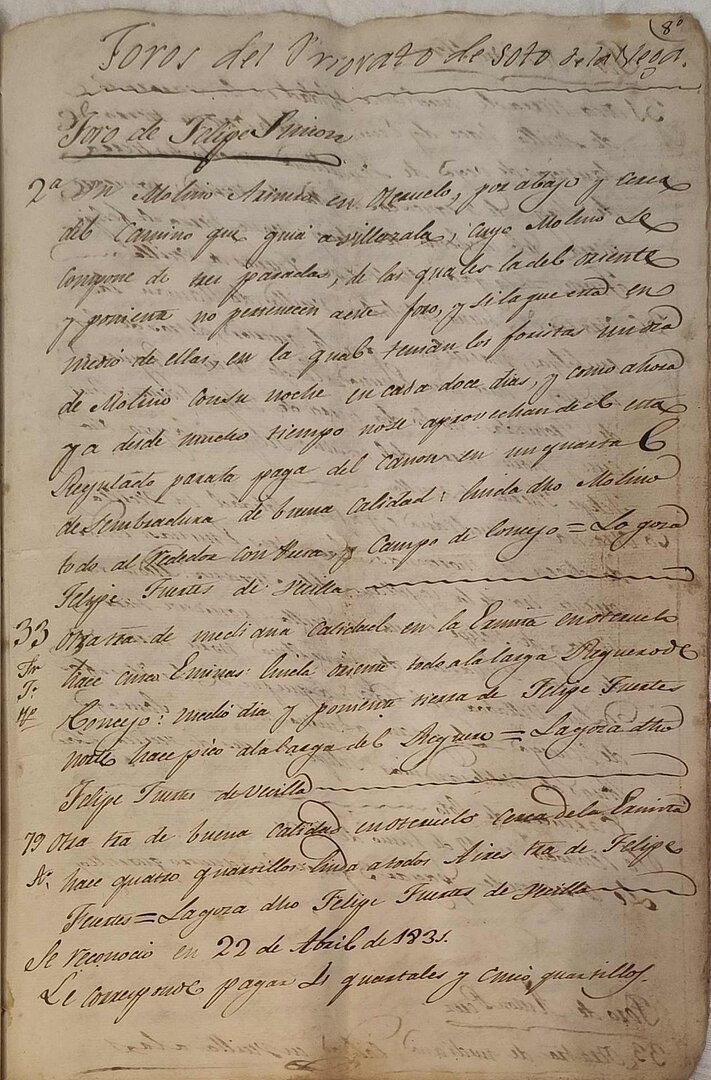 8º
Foros del Priorato de Soto de la Vega.
Foro de Felipe Simon
2ª Un Molino Arinero en Oteruelo, por abajo y cerca
del Camino que guia a Villazala, cuyo Molino Se
Compone de tres paradas, de las quales la del oriente
y poniente no pertenecen aeste foro, y si la que está en
medio de ellas, en la qual tenian los foristas un dia
de Molino consu noche en cada doce dias, y como ahora
ya desde mucho tiempo nose aprovechan de el esta
Regulado parala paga del Canon en un quartal
de Sembradura de buena calidad: linda dho Molino
todo al Rededor con y Campo de Concejo = Lagoza
Felipe Fuertes de Vecilla
33 otra tra de mediana Calidad en la Ermita enoteruelo
hace cinco Eminas: linda oriente todo ala larga Reguero de
Concejo: medio dia y poniente tierra de Felipe Fuertes
norte hace pico alalarga del Reguero = Lagoza dho
Felipe Fuertes de Vecilla
79 Otra tra de buena Calidad enoteruelo cerca dela Ermita
hace quatro quartillos: linda atodos Aires tra de Felipe
Fuertes = Lagoza dho Felipe Fuertes de Vecilla
Se reconocio en 22 de Abril de 1831.
Le corresponde pagar 4 quartales y cinco quartillos.